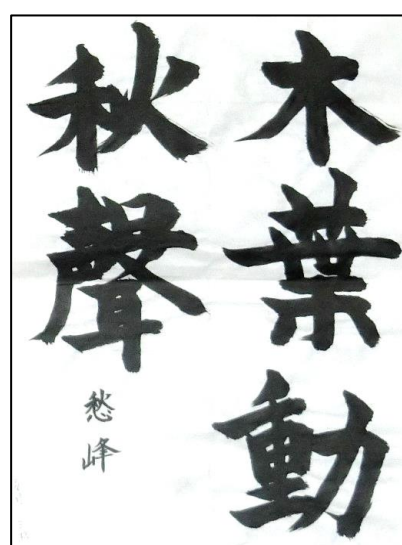 木葉動
秋聲
愁峰